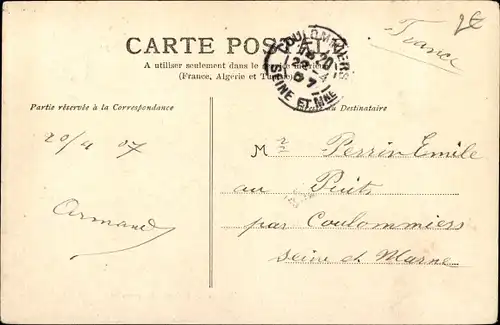 CARTE POSTALE
France
2€
A utiliser seulement dans le service intérieur
(France, Algérie et Tunisie)
COULOMMIERS
18 20
22 - 4
07
SEINE ET MNE
Partie réservée à la Correspondance
du Destinataire
20/4 07
Armand
Mr Perrin Emile
au Puits
par Coulommiers
Seine et Marne